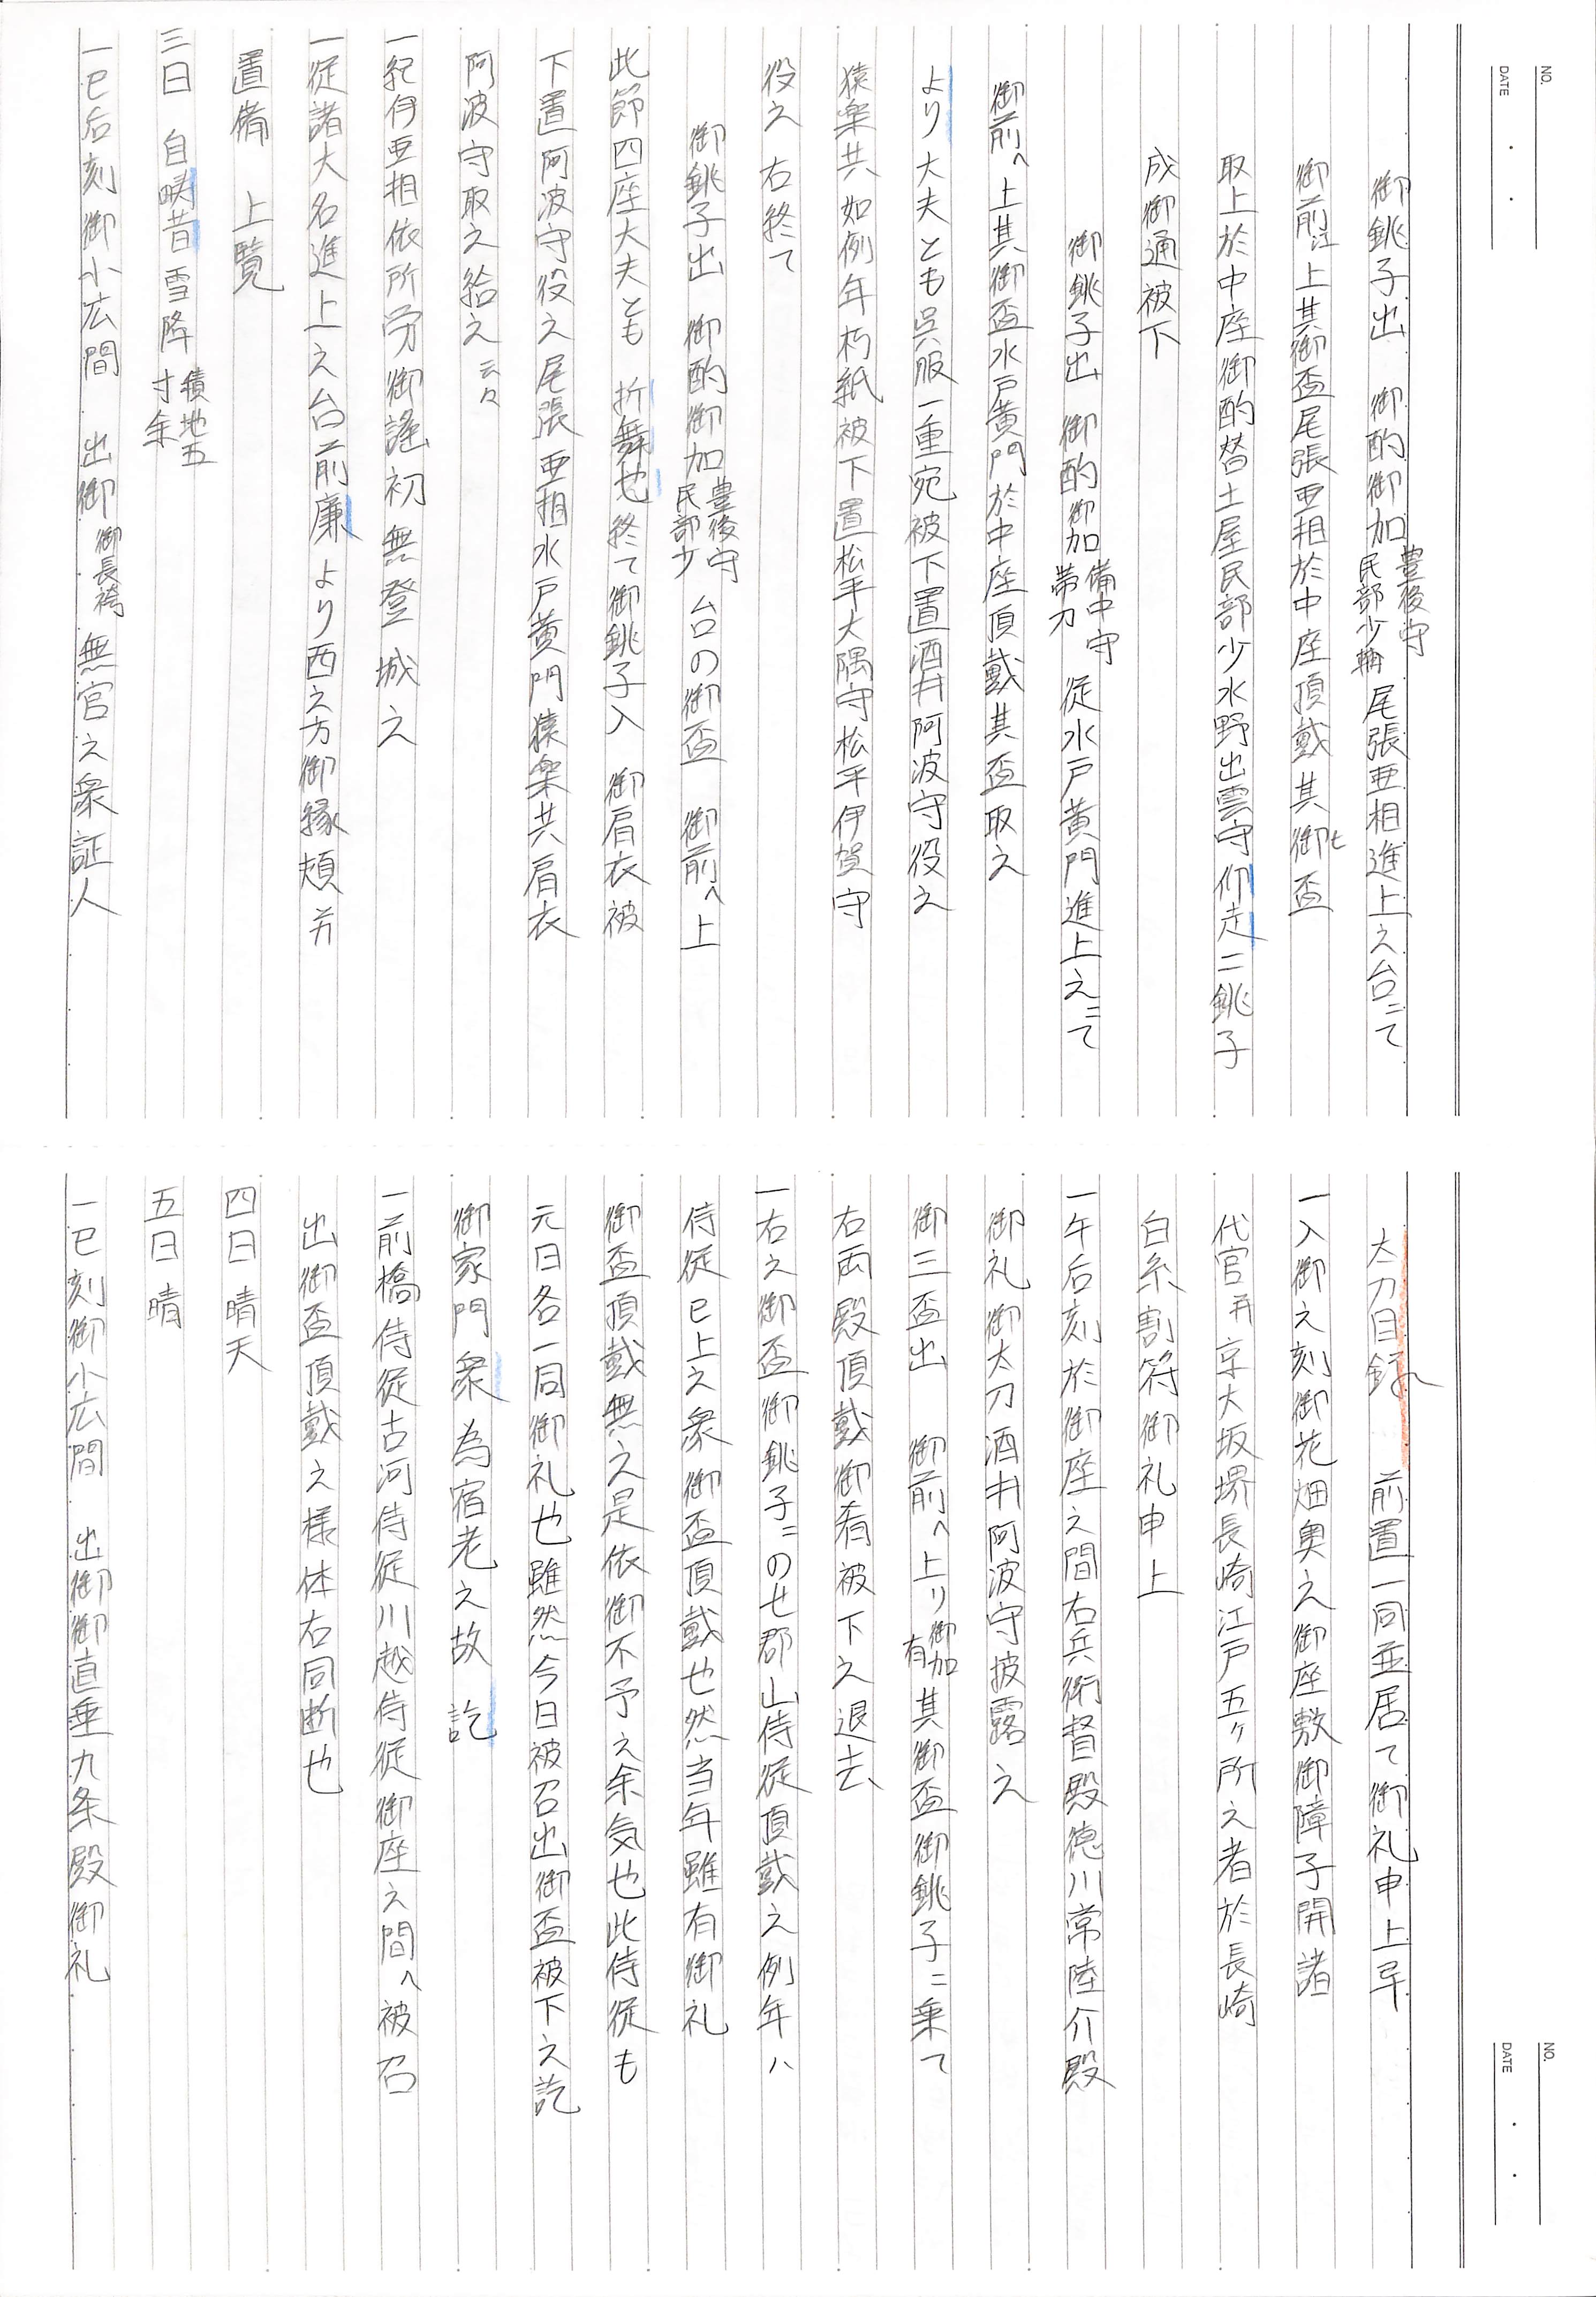 NO.
DATE
御銚子出　御酌御加 豊後守 民部少輔 尾張亜相進上之台ニて
御前江上其御盃尾張亜相於中座頂戴其御盃
取上於中座御酌替土屋民部少水野出雲守仰走ニ銚子
成御通被下
御銚子出　御酌御加 備中守 帯刀 従水戸黄門進上之ニて
御前へ上其御盃水戸黄門於中座頂戴其盃取之
より大夫とも呉服一重宛被下置酒井阿波守役之
猿楽共如例年朽紙被下置松平大隅守松平伊賀守
役之　右終て
御銚子出　御酌御加 豊後守 民部少 台の御盃　御前へ上
此節四座大夫とも　折舞也終て御銚子入　御肩衣被
下置阿波守役之尾張亜相水戸黄門猿楽共肩衣
阿波守取之給之 云々
一紀伊亜相依所労御謡初無登城之
一従諸大名進上之台前廉より西之方御縁頬并
置備　上覧
三日　自昳昔雪降 積地五 寸余
一巳后刻御小広間　出御 御長袴 無官之衆証人
NO.
DATE
太刀目録　前置一同並居て御礼申上早
一入御之刻御花畑奥之御座敷御障子開諸
代官并京大坂堺長崎江戸五ヶ所之者於長崎
白糸割符御礼申上
一午后刻於御座之間右兵衛督殿徳川常陸介殿
御礼御太刀酒井阿波守披露之
御三盃出　御前へ上り 御加 有 其御盃御銚子ニ乗て
右両殿頂戴御肴被下之退去
一右之御盃御銚子ニのせ郡山侍従頂戴之例年ハ
侍従已上之衆御盃頂戴也然当年雖有御礼
御盃頂戴無之是依御不予之余気也此侍従も
元日各一同御礼也雖然今日被召出御盃被下之訖
御家門衆為宿老之故訖
一前橋侍従古河侍従川越侍従御座之間へ被召
出御盃頂戴之様体右同断也
四日　晴天
五日　晴
一巳刻御小広間　出御御直垂九条殿御礼